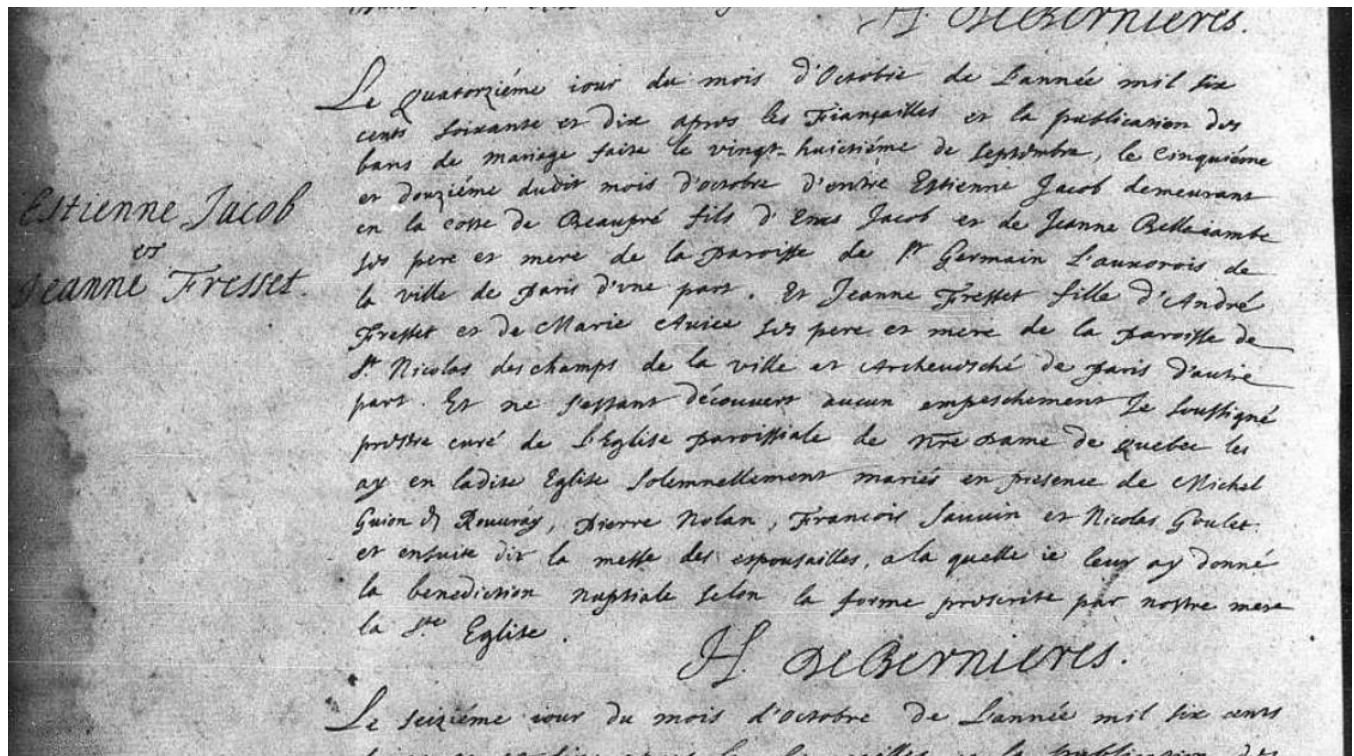 H. DeBernieres.
Le quatorziéme iour du mois d'Octobre de L'année mil six
cents soixante et dix apres les Fiançailles et la publication des
bans de mariage faite le vingt-huictiéme de Septembre, le Cinquiéme
et douziéme dudit mois d'octobre d'entre Estienne Jacob demeurant
en la coste de Beaupré fils d' Jacob et de Jeanne Bellejambe
ses pere et mere de la paroisse de St Germain L'auxerois de
la ville de paris d'vne part. Et Jeanne Fresset fille d'André
Fresset et de Marie Auice ses pere et mere de la paroisse de
St. Nicolas des champs de la ville et Archeuesché de paris d'autre
part. Et ne s'estant découvert aucun empeschement Je soussigné
prestre curé de L'Eglise paroissiale de nre Dame de quebec les
ay en ladite Eglise solemnellement mariés en presence de Michel
Guion Rouuray, pierre Nolan, Francois Sauuin et Nicolas Goulet.
et ensuite dit la messe des espousailles, a la quelle ie leur ay donné
la benediction nuptiale selon la forme prescrite par nostre mere
la Ste Eglise.
H. DeBernieres.
Estienne Jacob
et
Jeanne Fresset.
Le seiziéme iour du mois d'octobre de L'année mil six cents
la publication des